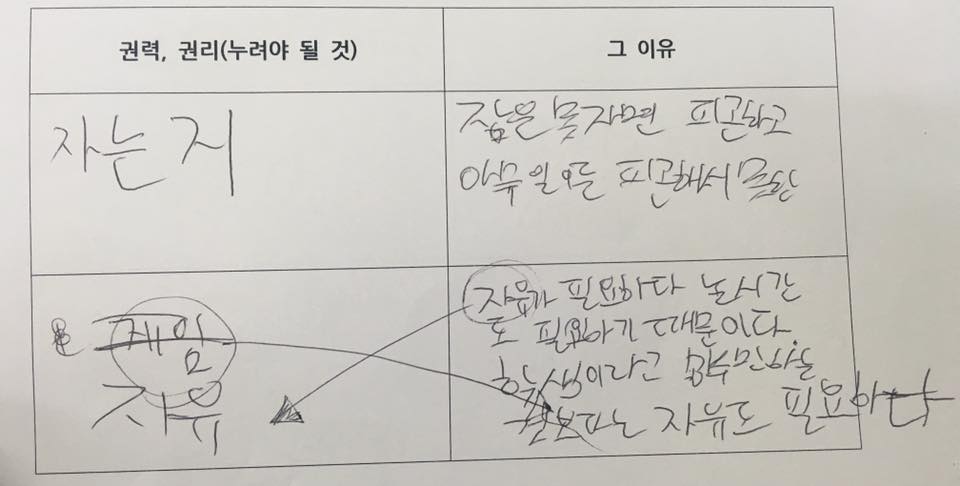 권력, 권리(누려야 될 것)
그 이유
자는 거
잠은 못자면 피곤하고
아무일도 피곤해서 못함
게임
자유
자유가 필요하다 논시간
도 필요하기 때문이다.
학생이라고 만하는
보다는 자유도 필요하다